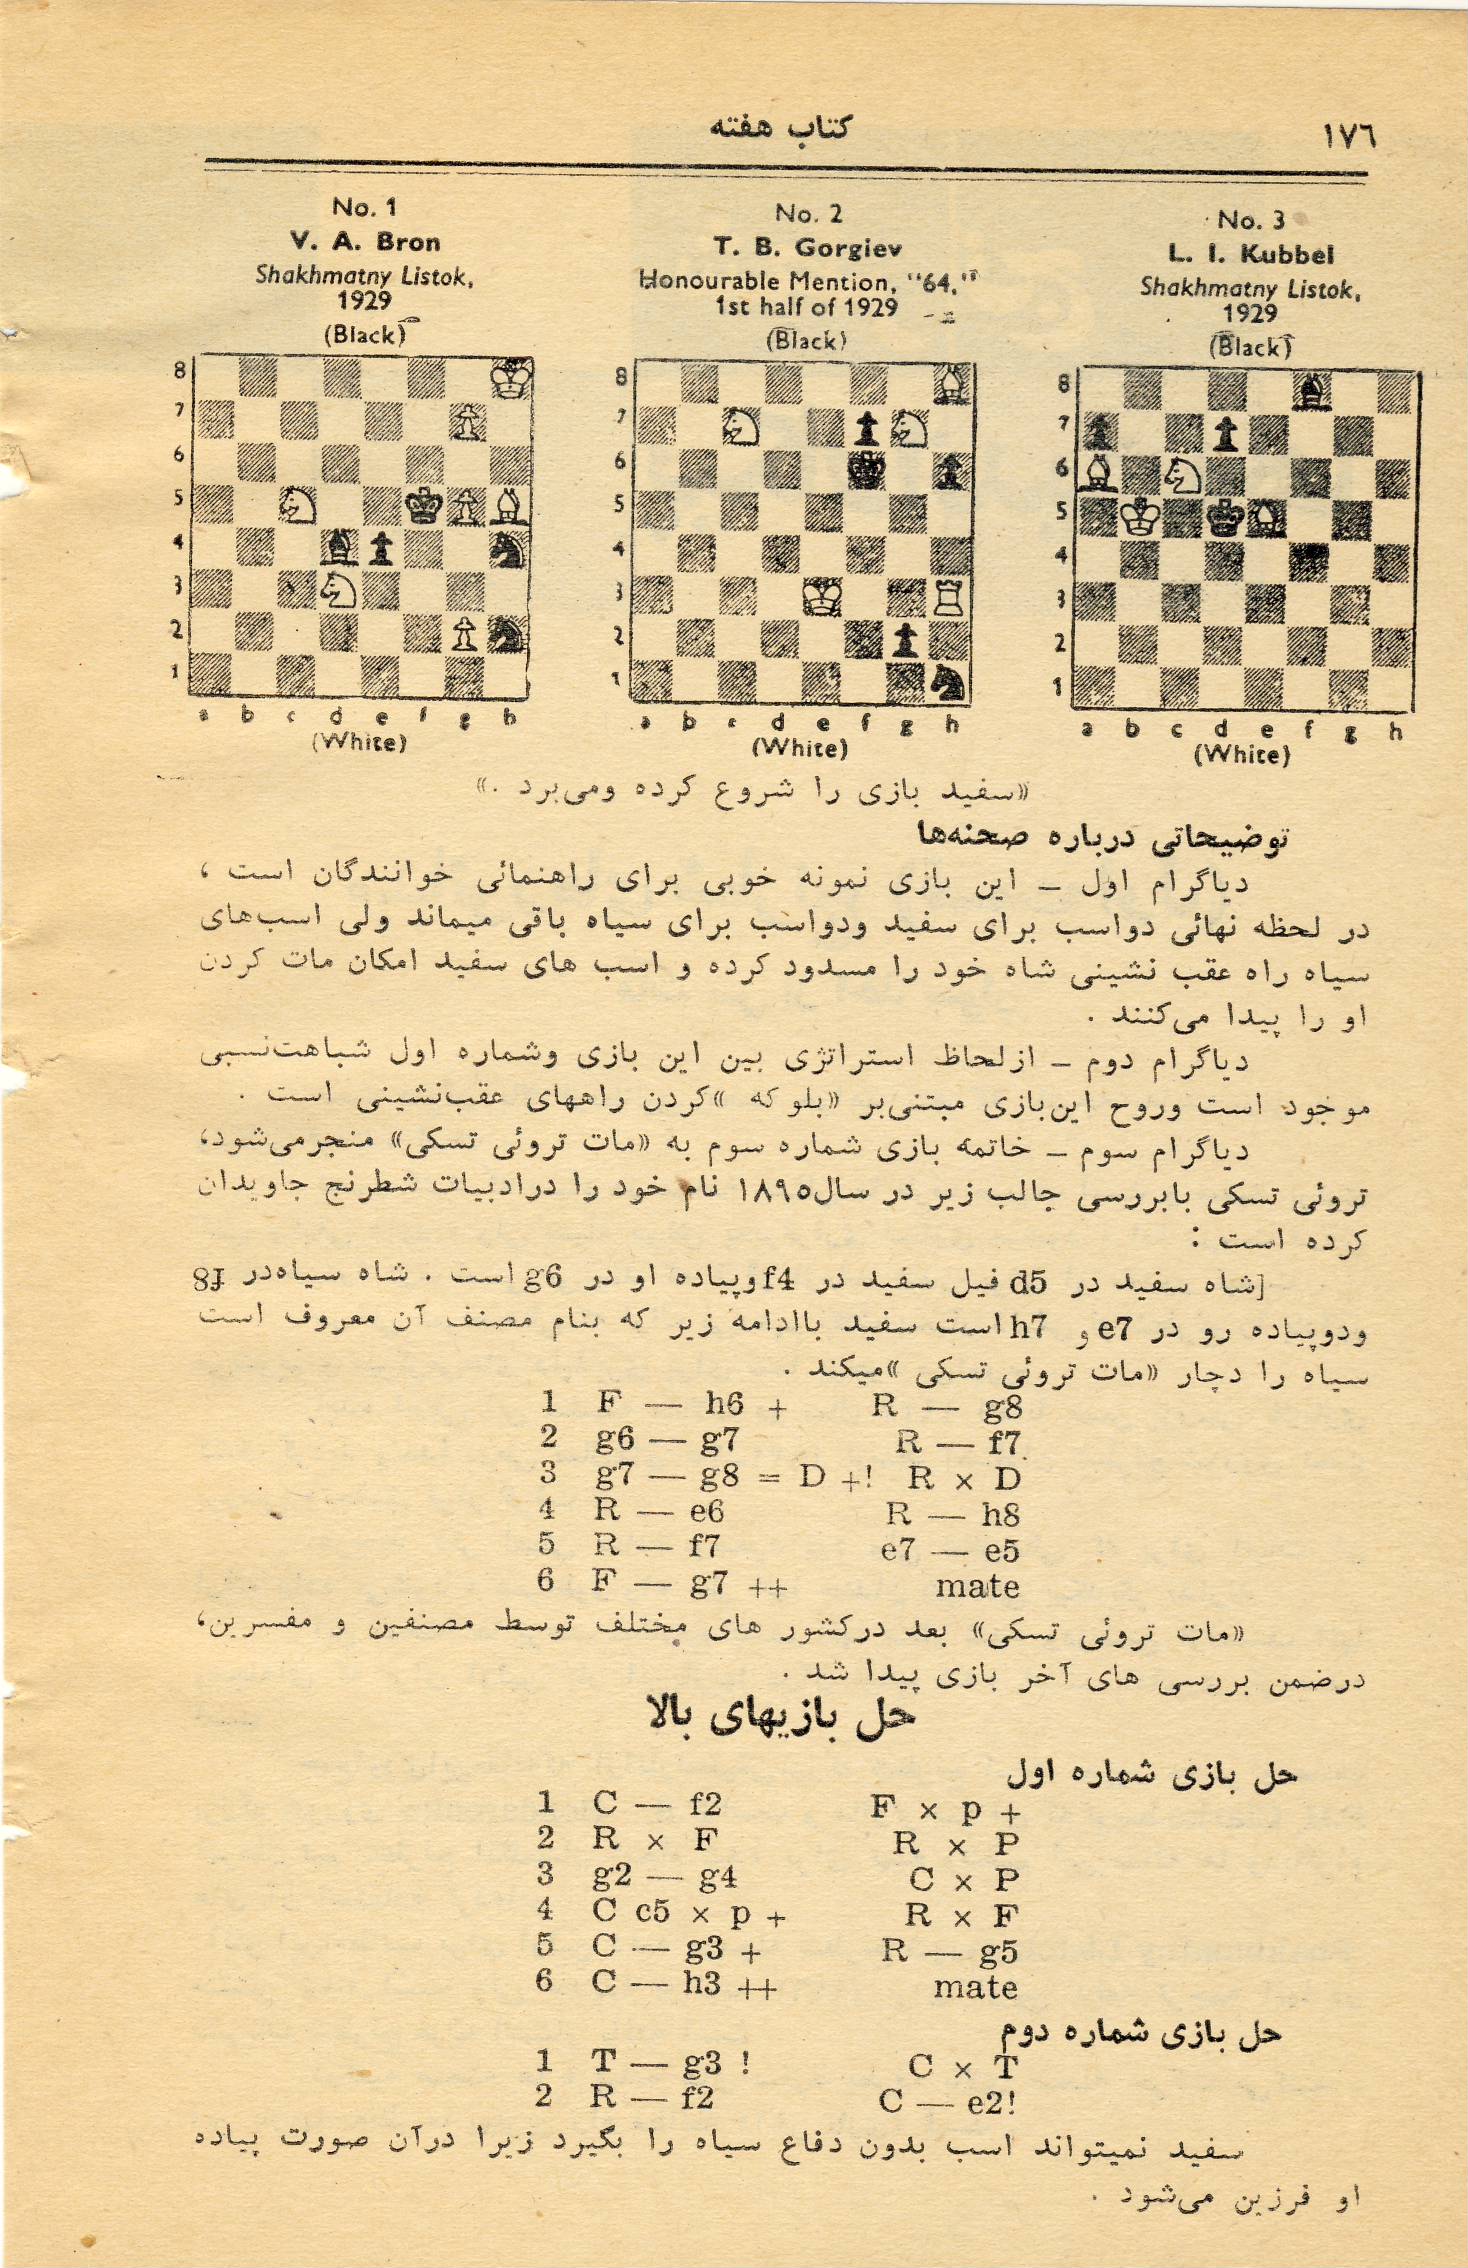 ۱۷٦
کتاب هفته
No. 1
V. A. Bron
Shakhmatny Listok,
1929
(Black)
8
7
6
5
4
3
2
1
a b c d e f g h
(White)
No. 2
T. B. Gorgiev
Honourable Mention, "64,"
1st half of 1929
(Black)
8
7
6
5
4
3
2
1
a b c d e f g h
(White)
No. 3
L. I. Kubbel
Shakhmatny Listok,
1929
(Black)
8
7
6
5
4
3
2
1
a b c d e f g h
(White)
«سفید بازی را شروع کرده ومی‌برد .»
توضیحاتی درباره صحنه‌ها
دیاگرام اول ــ این بازی نمونه خوبی برای راهنمائی خوانندگان است ،
در لحظه نهائی دواسب برای سفید ودواسب برای سیاه باقی میماند ولی اسب‌های
سیاه راه عقب نشینی شاه خود را مسدود کرده و اسب های سفید امکان مات کردن
او را پیدا می‌کنند .
دیاگرام دوم ــ ازلحاظ استراتژی بین این بازی وشماره اول شباهت‌نسبی
موجود است وروح این‌بازی مبتنی‌بر «بلوکه »کردن راههای عقب‌نشینی است .
دیاگرام سوم ــ خاتمه بازی شماره سوم به «مات تروئی تسکی» منجرمی‌شود،
تروئی تسکی بابررسی جالب زیر در سال۱۸۹۵ نام خود را درادبیات شطرنج جاویدان
کرده است :
[شاه سفید در d5 فیل سفید در f4 وپیاده او در g6 است . شاه سیاه‌در f8
ودوپیاده رو در e7 و h7 است سفید باادامه زیر که بنام مصنف آن معروف است
سیاه را دچار «مات تروئی تسکی »میکند .
1 F — h6 + R — g8
2 g6 — g7 R — f7
3 g7 — g8 = D +! R × D
4 R — e6 R — h8
5 R — f7 e7 — e5
6 F — g7 ++ mate
«مات تروئی تسکی» بعد درکشور های مختلف توسط مصنفین و مفسرین،
درضمن بررسی های آخر بازی پیدا شد .
حل بازیهای بالا
حل بازی شماره اول
1 C — f2 F × p +
2 R × F R × P
3 g2 — g4 C × P
4 C c5 × p + R × F
5 C — g3 + R — g5
6 C — h3 ++ mate
حل بازی شماره دوم
1 T — g3 ! C × T
2 R — f2 C — e2!
سفید نمیتواند اسب بدون دفاع سیاه را بگیرد زیرا درآن صورت پیاده
او فرزین می‌شود .